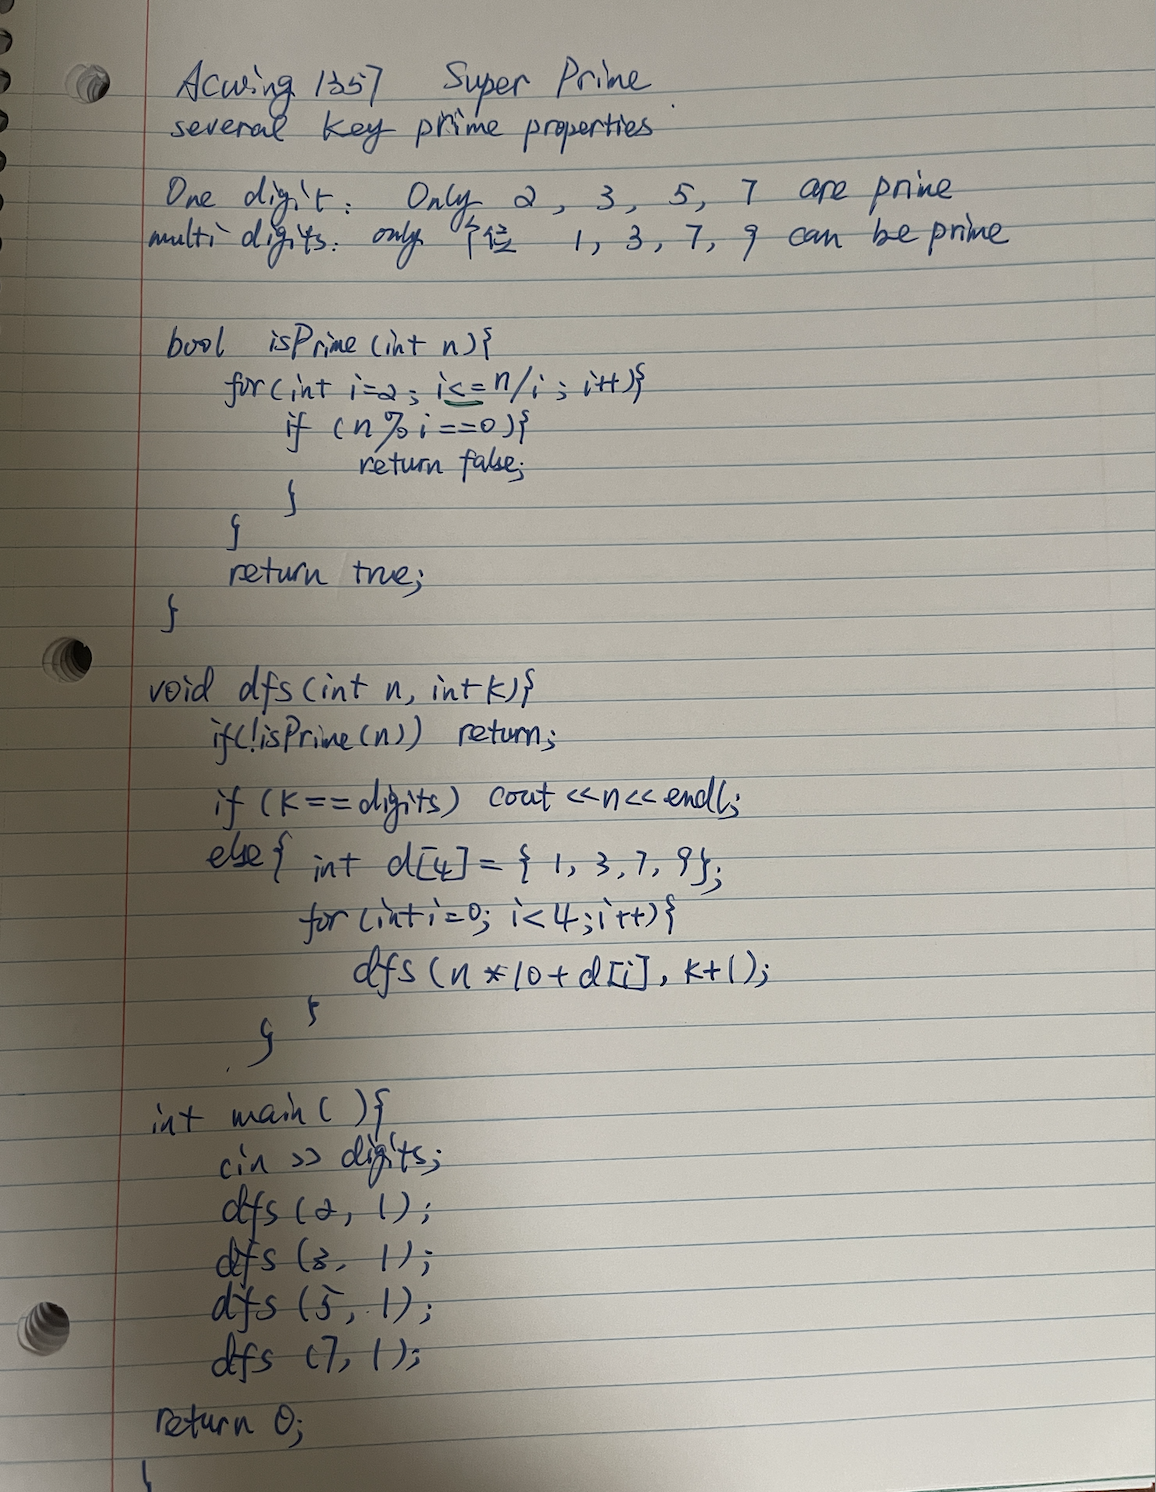 Acwing 1357 Super Prime
several key prime properties
One digit: Only 2, 3, 5, 7 are prime
multi digits: only 个位 1, 3, 7, 9 can be prime
bool isPrime (int n){
for(int i=2; i<=n/i; i++){
if (n%i==0){
return false;
}
}
return true;
}
void dfs(int n, int k){
if(!isPrime(n)) return;
if (k==digits) cout <<n<<endl;
else{ int d[4]={1,3,7,9};
for (int i=0; i<4; i++){
dfs (n*10+d[i], k+1);
}
}
int main( ){
cin >> digits;
dfs (2, 1);
dfs (3, 1);
dfs (5, 1);
dfs (7, 1);
return 0;
}